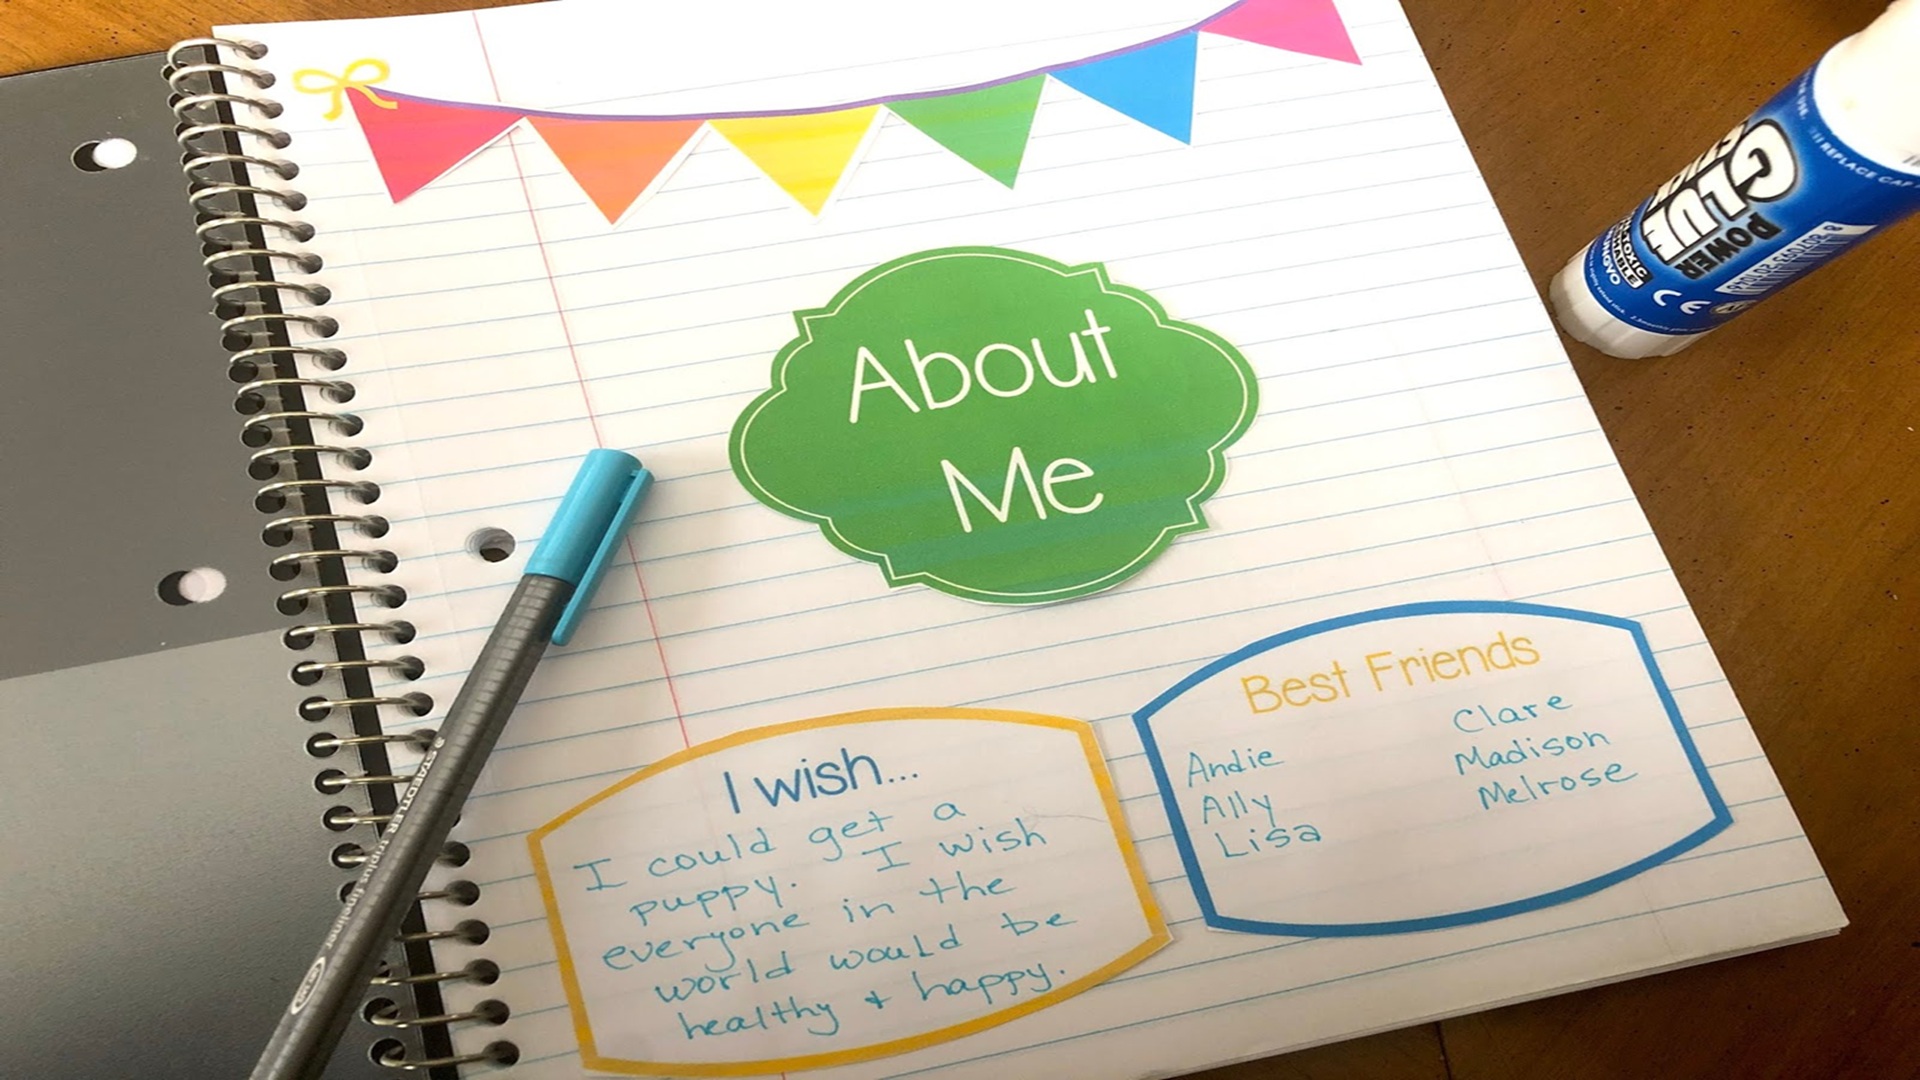 About
Me
I wish...
I could get a
puppy. I wish
everyone in the
world would be
healthy + happy.
Best Friends
Andie
Ally
Lisa
Clare
Madison
Melrose
STAEDTLER triplus fineliner
POWER
GLUE
CE